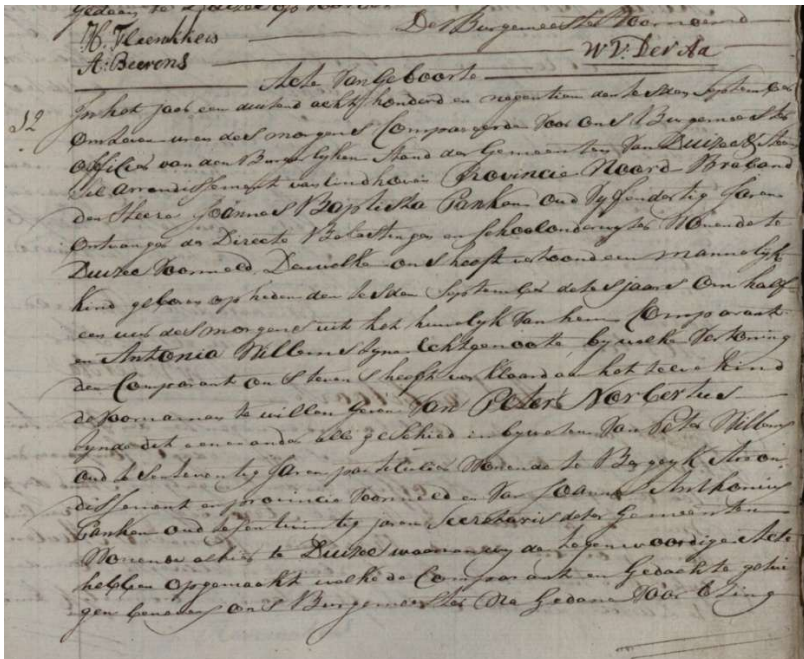 gedaen te Duizel op
De Burgemeester Voornoemd
H. Vleerakkers
A: Beerens
W V: Der Aa
Acte Van Geboorte
12 In het jaar een duizend acht honderd en negentien den sesden September
Om seven uren des morgens Compareerde voor ons Burgemeester
officier van den Burgerlyken Stand der Gemeenten Van Duizel & Steen
sel arrondissement van Eindhoven Provincie Noord Braband
den Heere Joannes Baptista Panken oud Vyfendertig Jaren
Ontvanger der Directe Belastingen en Schoolonderwyzer Wonende te
Duizel Voormeld, Dewelke ons heeft vertoond een mannelyk
Kind geboren op heden den sesden September dezes jaars om half
een uur des morgens uit het huwelyk Van hem Comparant
en Antonia Willems zyne Echtgenoote by welke Vertoning
den Comparant ons tevens heeft verklaard aan het zelve kind
de voornamen te willen geven Van Peter Norbertus
zynde dit een en ander alle geschied in bywesen Van Peter Willems
oud sesenseventig Jaren particulier Wonende te Bergeyk Arron
dissement en provincie voormeld en Van Joannes Anthonius
Panken oud sesentwintig jaren Secretaris dezer Gemeenten
Wonende alhier te Duizel waarvan wy de tegenwoordige Acte
hebben opgemaakt welke de Comparant en Gedachte getui
gen benevens ons Burgemeester Na Gedane Voorlezing